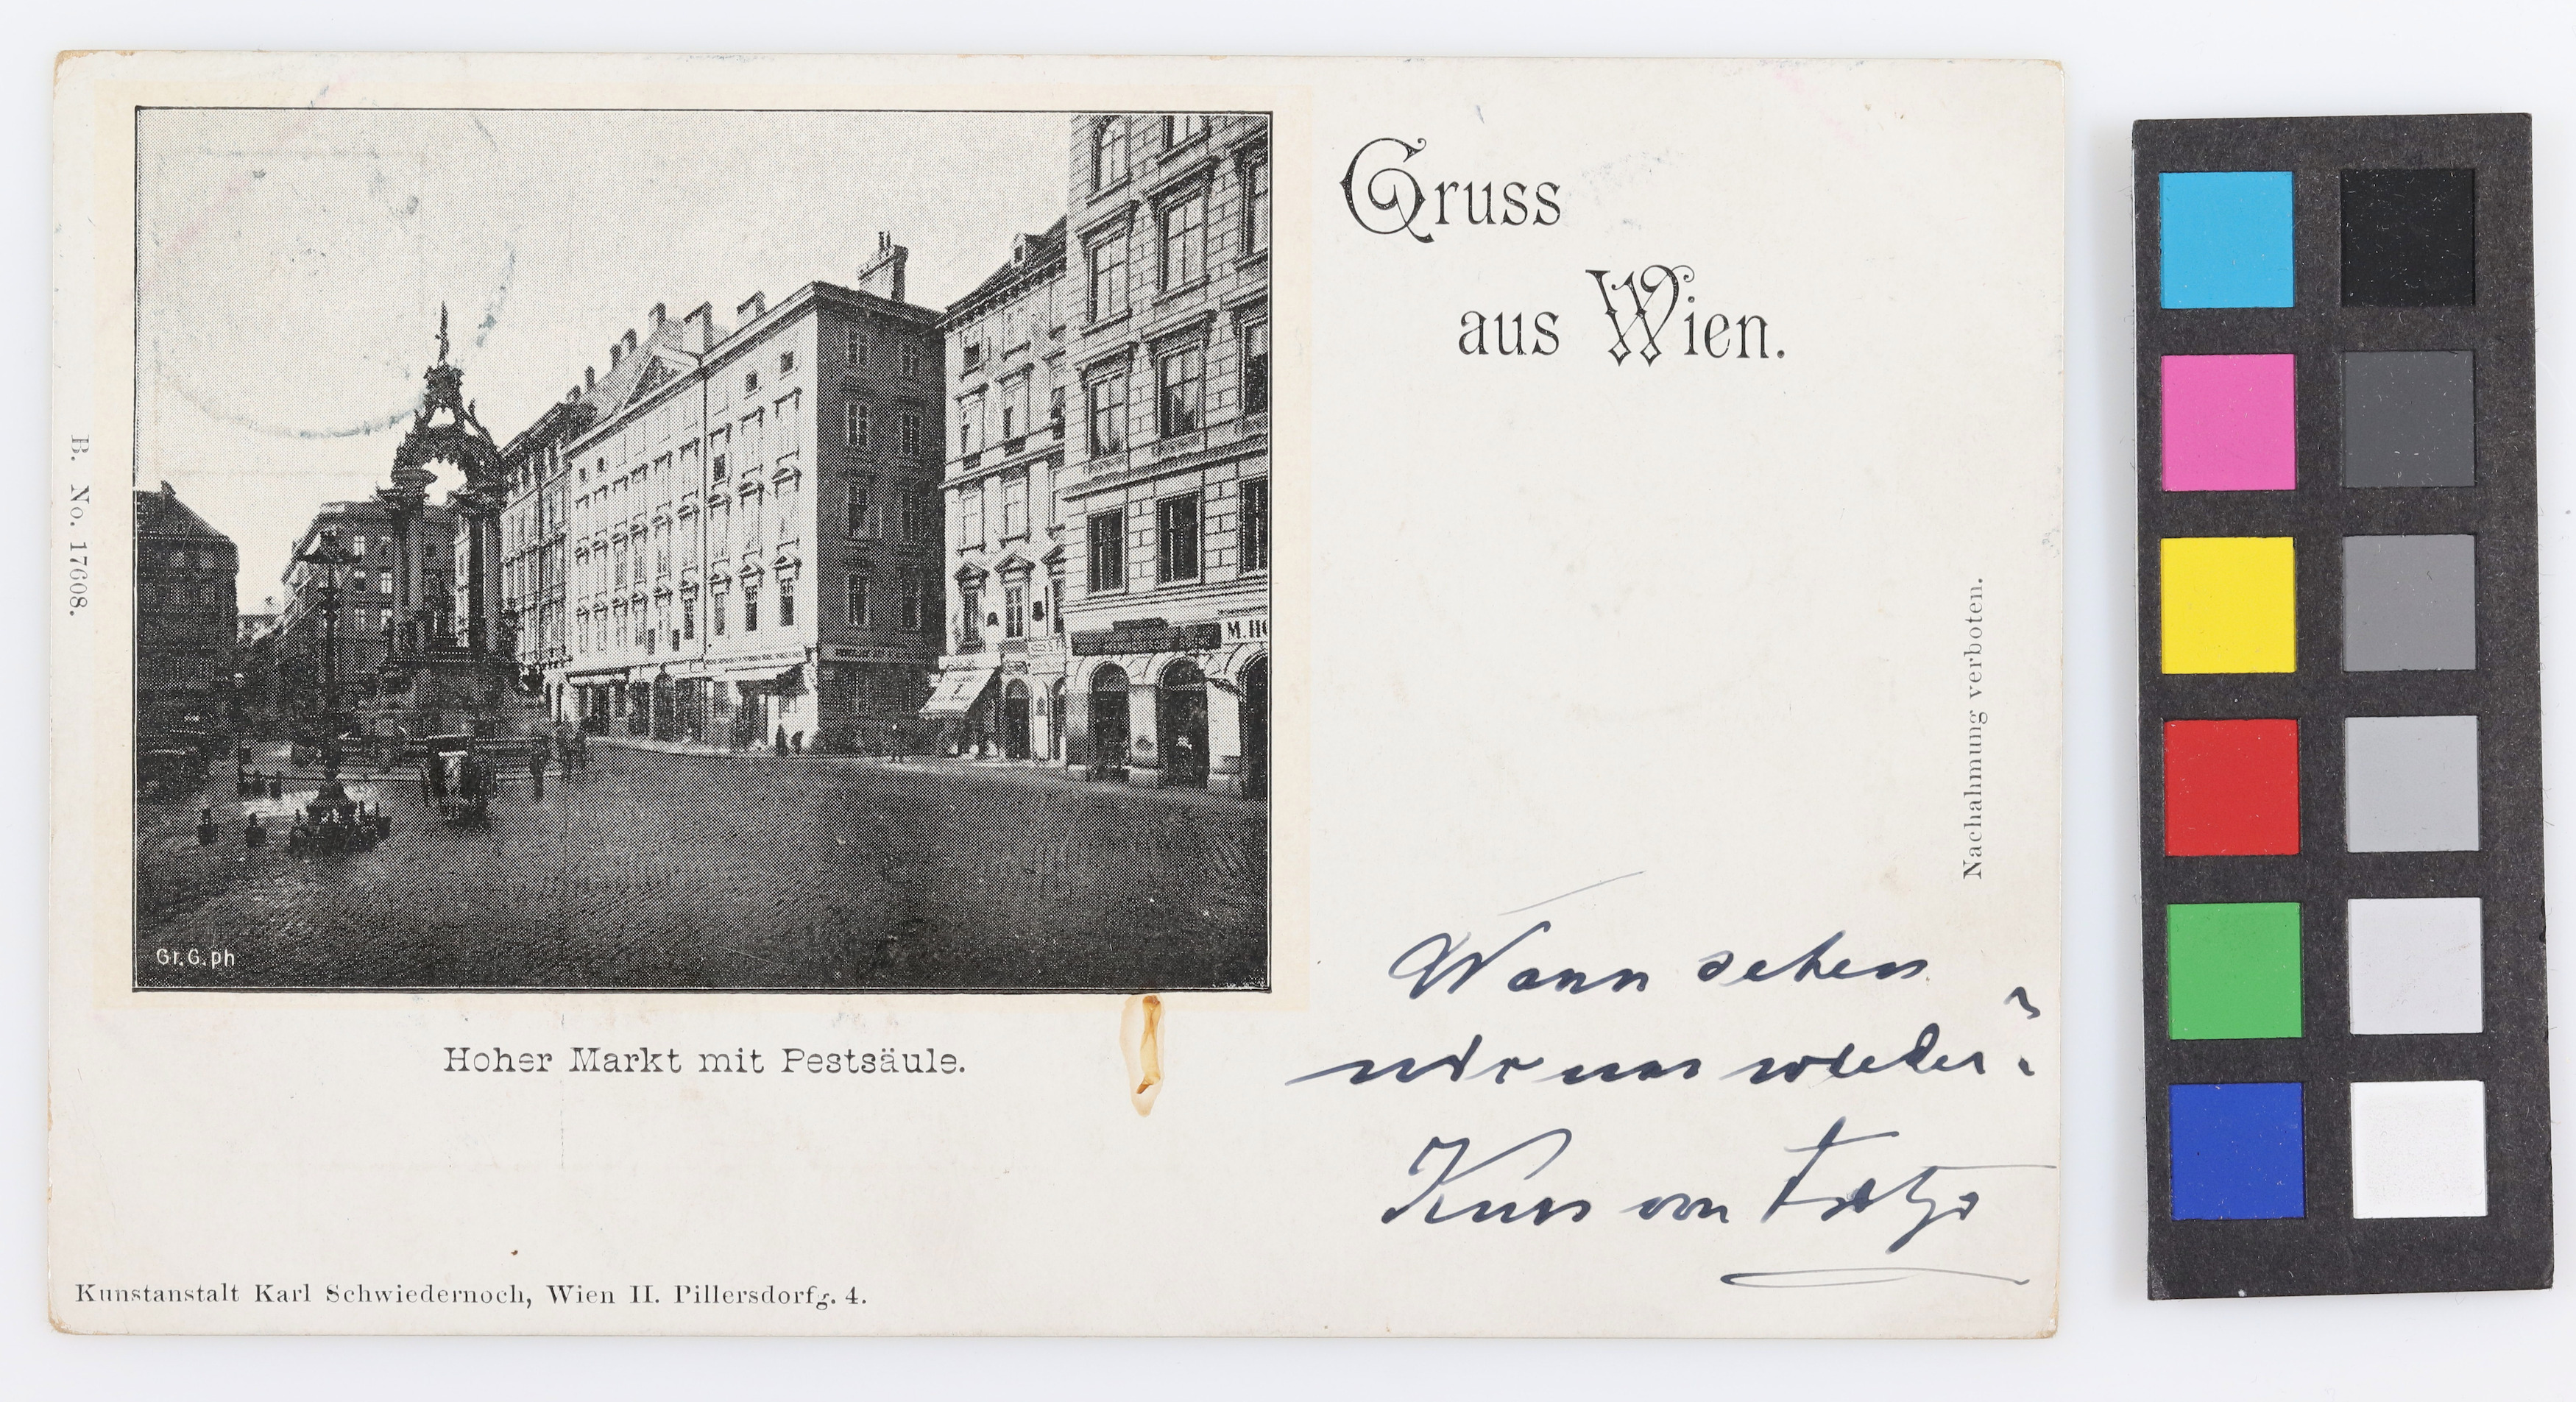 Gruss
aus Wien.
B. No. 17608.
M. HO
Gr. G. ph
Nachahmung verboten.
Hoher Markt mit Pestsäule.
Wann sehen
wir uns wieder?
von
Kunstanstalt Karl Schwiedernoch, Wien II. Pillersdorfg. 4.